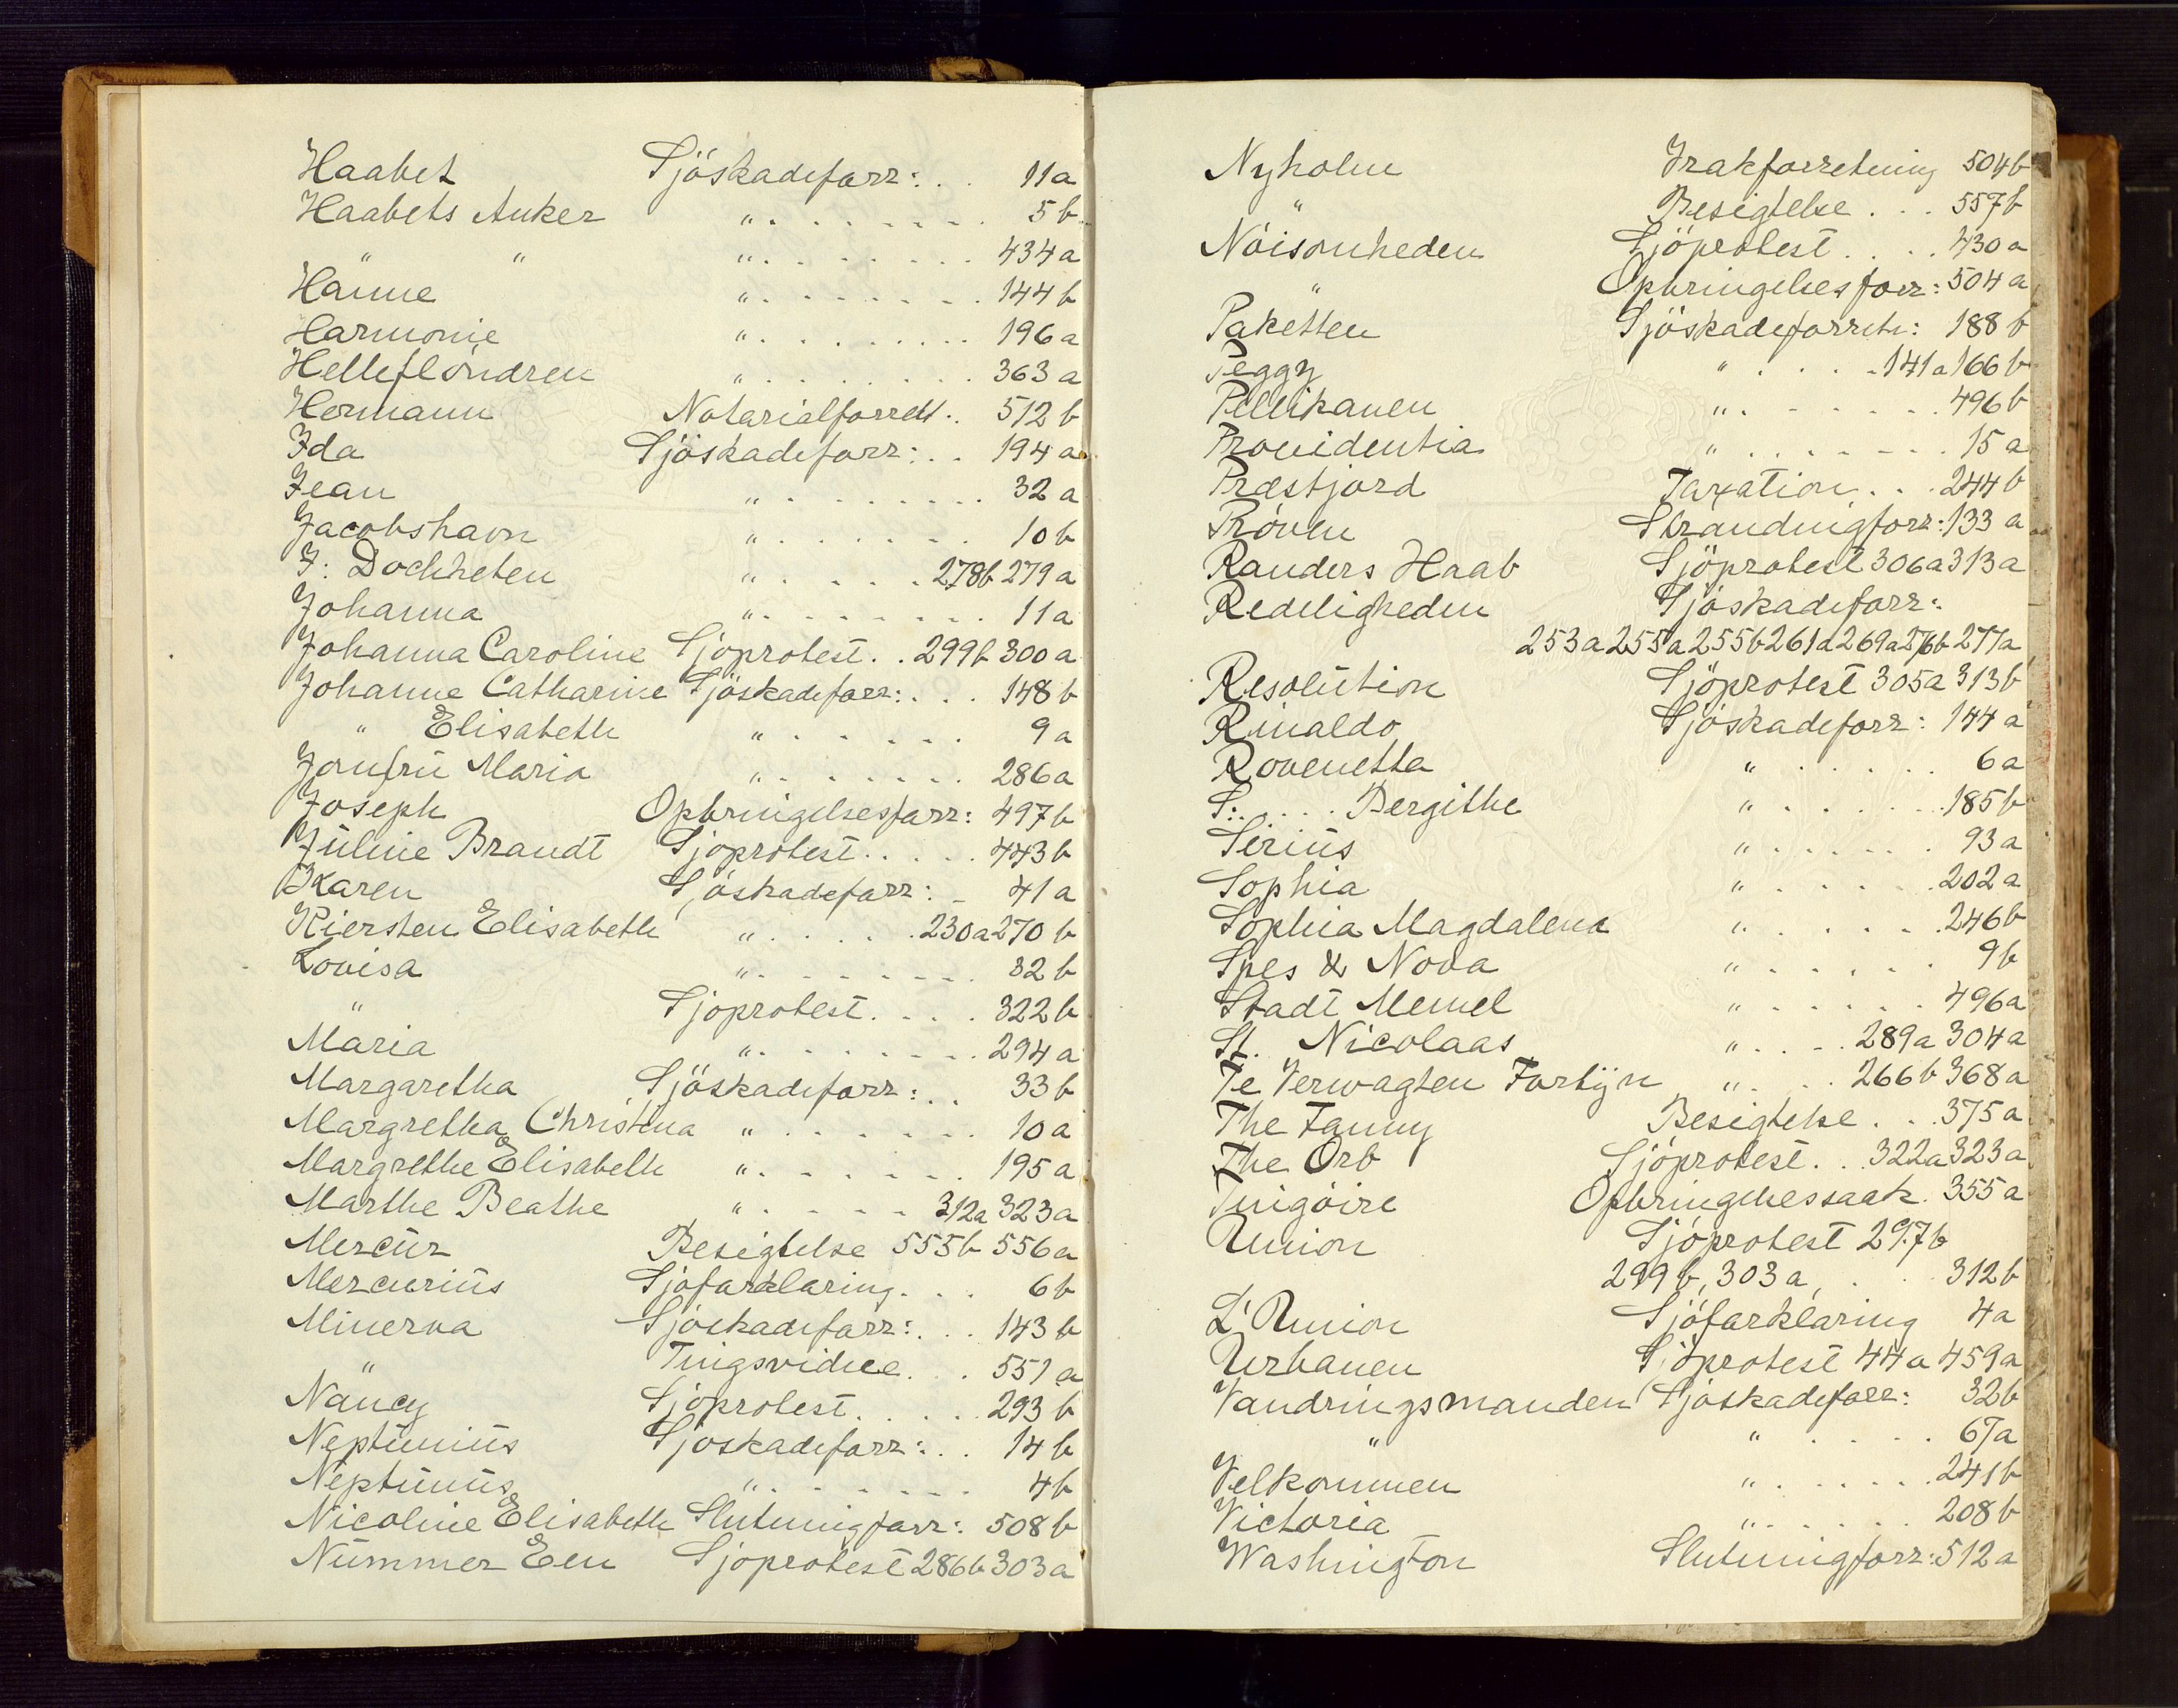 Haabet Sjöskadeforr: . . 11a
Haabets Anker " . . . . . . . 5b
" " " . . . . . . . 434a
Hanne " . . . . . . . 144b
Harmonie " . . . . . . . . 196a
Helleflöndren " . . . . . . . 363a
Hermann Notarialforrett . . 512b
Ida Sjöskadeforr: . . 194a
Jean " . . . . . . . 32a
Jacobshavn " . . . . . . 10b
J: Dochheten " . . . . . 278b 279a
Johanna " . . . . . . . 11a
Johanna Caroline Sjöprotest . . 299b 300a
Johanne Catharine Sjöskadeforr: . . . 148b
" Elisabeth " . . . . . 9a
Jomfru Maria " . . . . . . 286a
Joseph Opbringelsesforr: 497b
Juline Brandt Sjöprotest . . . . 443b
Karen Sjöskadeforr: . 41a
Kiersten Elisabeth " . . . . 230a 270b
Lovisa " . . . . . . . 32b
" Sjöprotest . . . . 322b
Maria " . . . . . . . 294a
Margaretha Sjöskadeforr: . . 33b
Margretha Christina " . . . . . . 10a
Margrethe Elisabeth " . . . . . . 195a
Marthe Beathe " . . . . 312a 323a
Mercur Besigtelse 555b 556a
Mercurius Sjöforklaring . . . 6b
Minerva Sjöskadeforr: . . . 143b
" Tingsvidne . . . 551a
Nancy Sjöprotest . . . . . 293b
Neptunius Sjöskadeforr: . . 14b
Neptunus " . . . . . . . 4b
Nicoline Elisabeth Slutningforr: 508b
Nummer Een Sjöprotest 286b 303a
Nyholm Vrakforretning 504b
" Besigtelse . . . 557b
Nöisomheden Sjöprotest . . . . 430a
" Opbringelsesforr: 504a
Paketten Sjöskadeforretn: 188b
Peggy " . . . . 141a 166b
Pellikanen " . . . . . . . 496b
Providentia " . . . . . . . 15a
Præstjord Taxation . . . 244b
Pröven Strandingforr: 133a
Randers Haab Sjöprotest 306a 313a
Redeligheden Sjöskadeforr:
253a 255a 255b 261a 269a 276b 277a
Resolution Sjöprotest 305a 313b
Rinaldo Sjöskadeforr: 144a
Rovenetta " . . . . . . 6a
S: . . . . Bergithe " . . . . . 185b
Serius " . . . . . . 93a
Sophia " . . . . . 202a
Sophia Magdalena " . . . . . . 246b
Spes & Nova " . . . . . . 9b
Stadt Memel " . . . . . . 496a
St. Nicolaas " . . . . 289a 304a
Te Verwagten Fortijn " . . . 266b 368a
The Fanny Besigtelse . . . 375a
The Orb Sjöprotest . . 322a 323a
Tingöire Opbringelsessaak . 355a
Union Sjöprotest 297b
299b, 303a, . . 312b
L'Union Sjöforklaring 4a
Urbanen Sjöprotest 44a 459a
Vandringsmanden Sjöskadeforr: 32b
" " . . . . . 67a
Velkommen " . . . . . . 241b
Victoria " . . . . . 208b
Washington Slutningforr: 512a